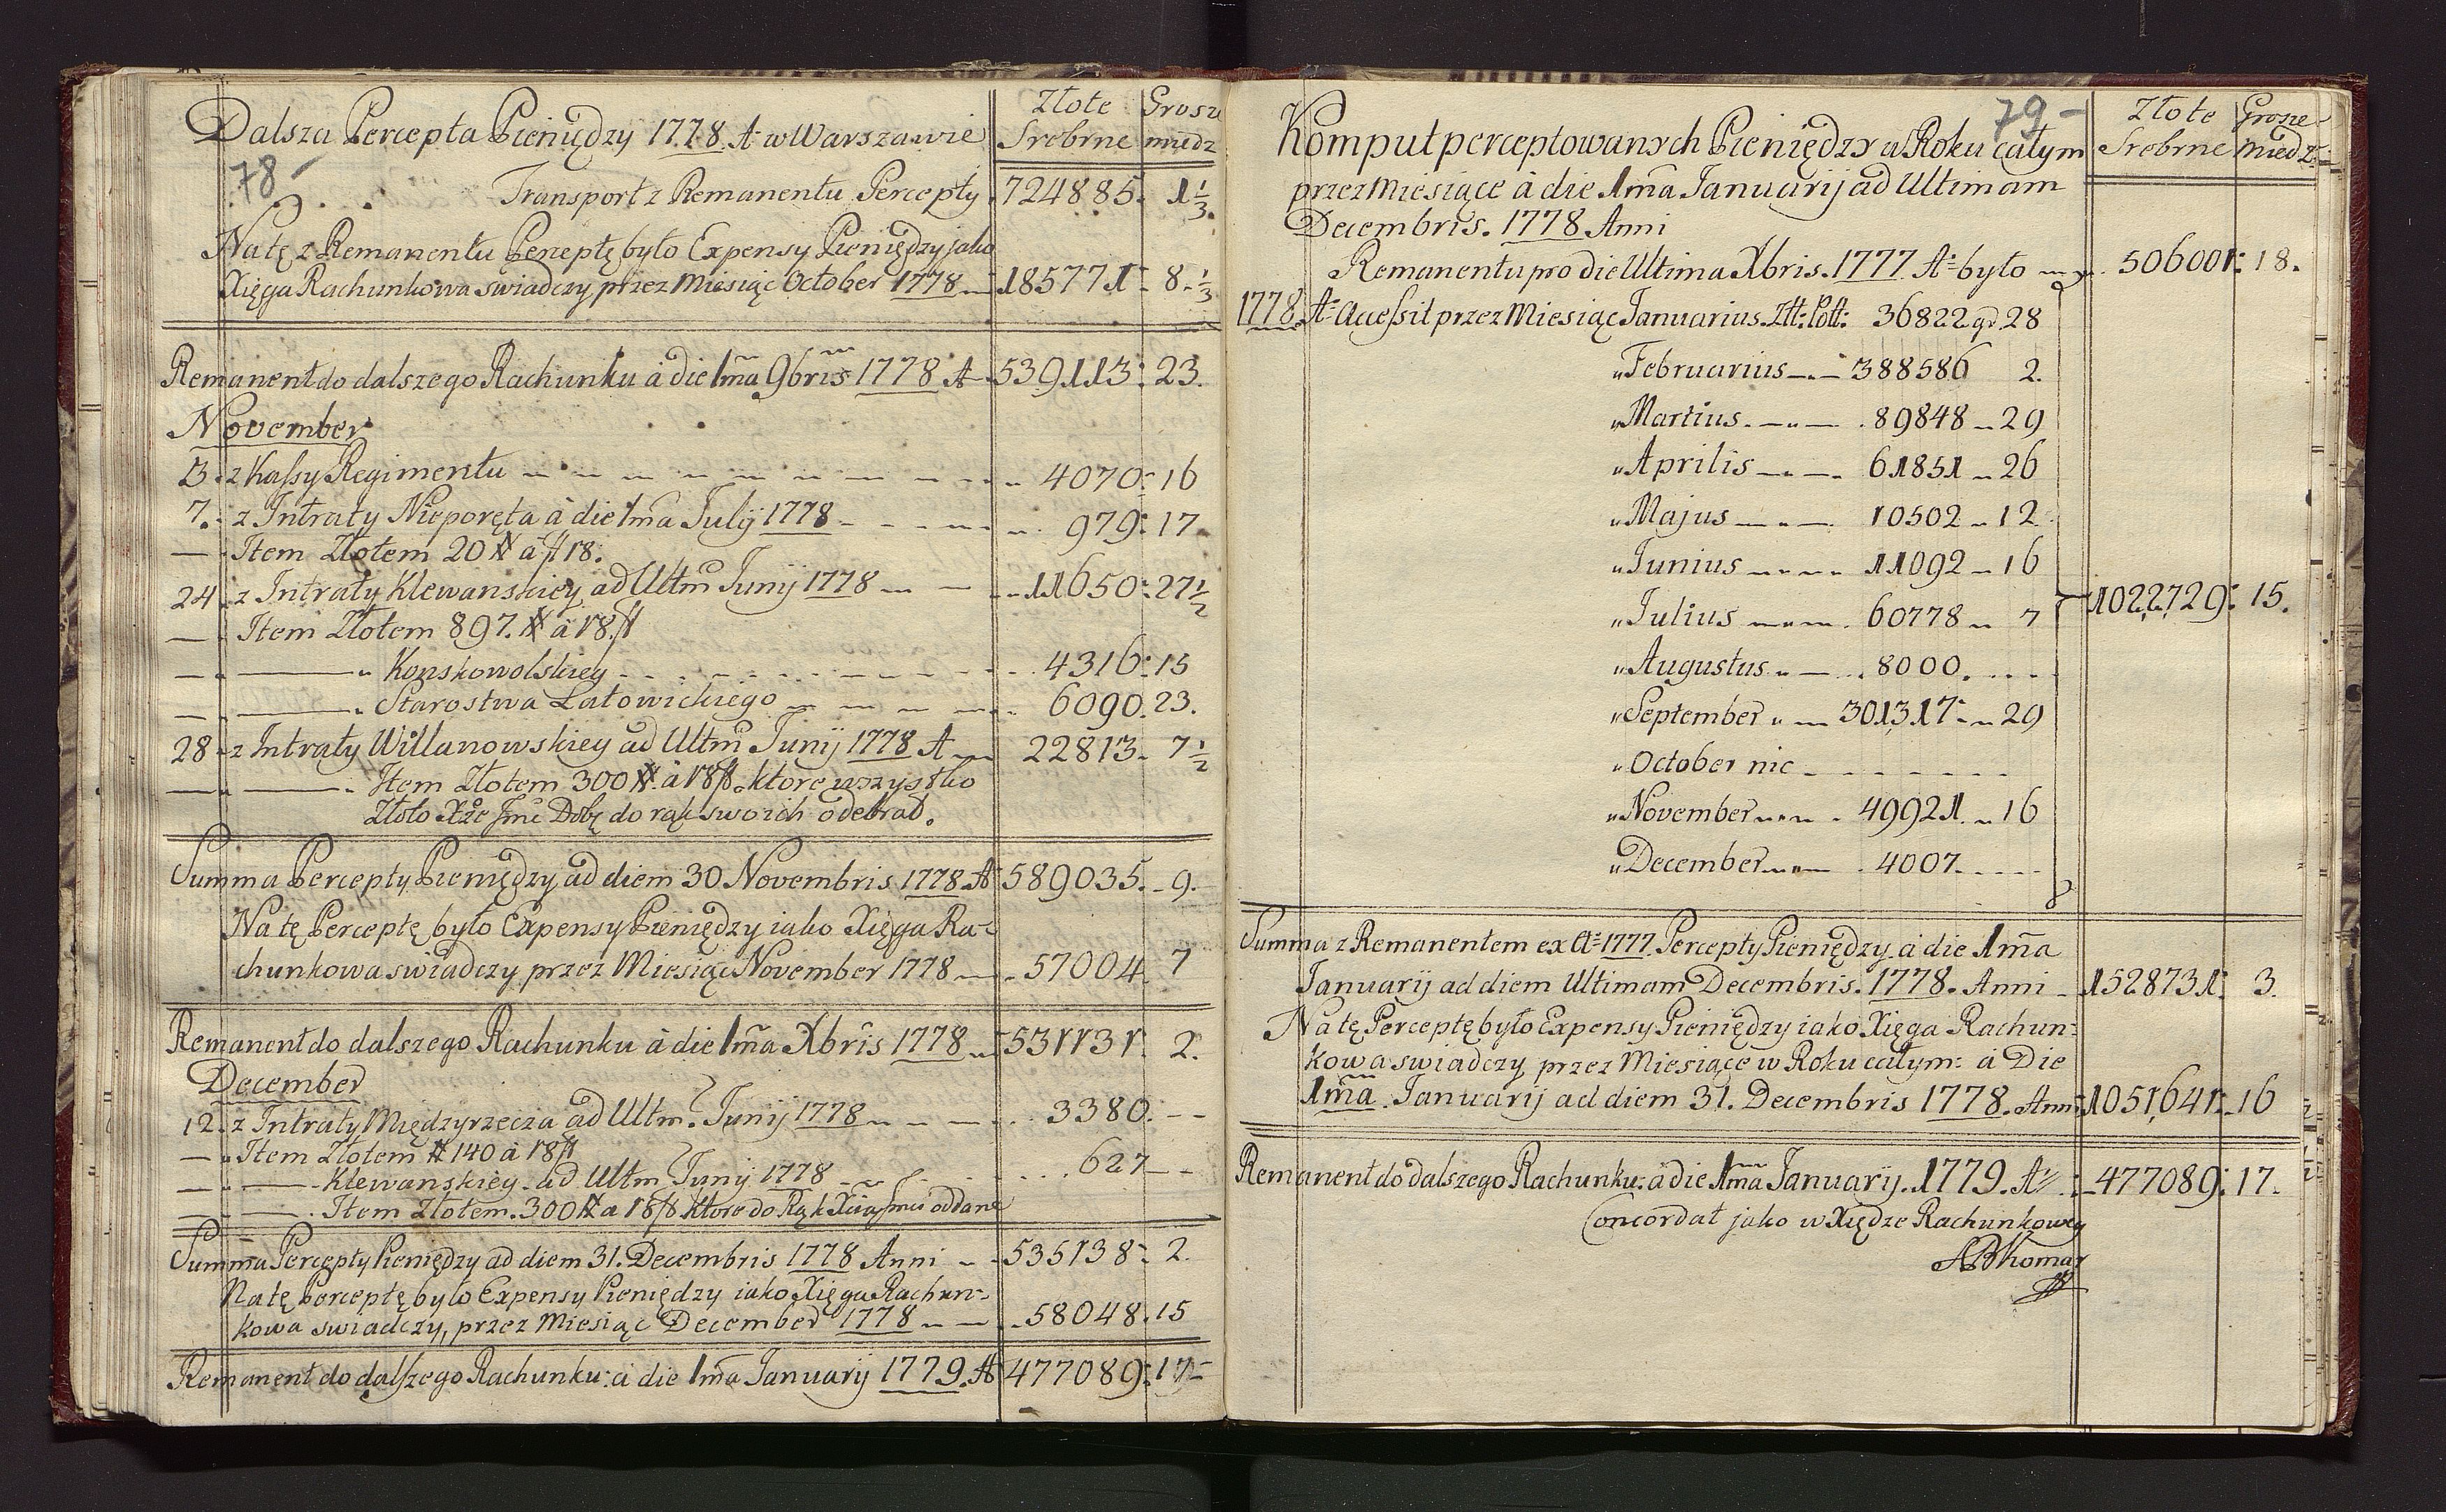 Dalsza Percepta Pieniędzy 1778 A w Warszawie Złote Grosze
Srebrne miedz
78-
Transport z Remanentu Percepty 724885. 1 1/3.
Na tę z Remanentu Perceptę było Expensy Pieniędzy jako
Xięga Rachunkowa swiadczy przez Miesiąc October 1778 185771 8 1/3
Remanent do dalszego Rachunku à die 1ma 9bris 1778 A 539113: 23.
November
3. z Kassy Regimentu 4070: 16
7. z Intraty Nieporęta à die 1ma Julij 1778 979: 17
Item Złotem 20 # à fl 18.
24 z Intraty Klewanskiey ad Ultm Junij 1778 11650: 27 1/2
Item Złotem 897. # à 18 fl
Konskowolskiey 4316: 15
Starostwa Latowickiego 6090. 23.
28 z Intraty Willanowskiey ad Ultm Junij 1778 A 22813. 7 1/2
Item Złotem 300 # à 18 fl. ktore wszystko
Złoto Xże Jmć Dobr. do rąk swoich odebrał.
Summa Percepty Pieniędzy ad diem 30 Novembris 1778 A 589035. 9.
Na tę Perceptę było Expensy Pieniędzy iako Xięga Ra-
chunkowa swiadczy przez Miesiąc November 1778 57004. 7
Remanent do dalszego Rachunku à die 1ma Xbris 1778 531131. 2.
December
12. z Intraty Międzyrzecza ad Ultm. Junij 1778 3380.
Item Złotem # 140 à 18 fl
Klewanskiey ad Ultm Junij 1778 627
Item Złotem 300 # a 18 fl ktore do Rąk Xcia Jmci oddane
Summa Percepty Pieniędzy ad diem 31. Decembris 1778 Anni 535138: 2.
Na tę perceptę było Expensy Pieniędzy iako Xięga Rachun-
kowa swiadczy, przez Miesiąc December 1778 58048. 15
Remanent do dalszego Rachunku: à die 1ma Januarij 1779. A 477089: 17
79-
Komput perceptowanych Pieniędzy w Roku całym Złote Grosze
Srebrne Miedz.
przez Miesiące à die 1ma Januarij ad Ultimam
Decembris. 1778 Anni
Remanentu pro die Ultima Xbris. 1777 A: było 506001: 18.
1778. A: Accessit przez Miesiąc Januarius. Złt: Poll: 36822 gr 28
Februarius 388586 2.
Martius 89848 29
Aprilis 61851 26
Majus 10502 12
Junius 11092 16
Julius 60778 7 1022729: 15.
Augustus 8000.
September 301317 29
October nic
November 49921. 16
December 4007.
Summa z Remanentem ex A: 1777. Percepty Pieniędzy à die 1ma
Januarij ad diem Ultimam Decembris. 1778. Anni 1528731: 3.
Na tę Perceptę było Expensy Pieniędzy iako Xięga Rachun:
kowa swiadczy, przez Miesiące w Roku całym: à Die
1ma. Januarij ad diem 31. Decembris 1778. Anni 1051641: 16
Remanent do dalszego Rachunku: à die 1ma Januarij. 1779. A 477089: 17.
Concordat jako w Xiędze Rachunkowey
ABKhomar